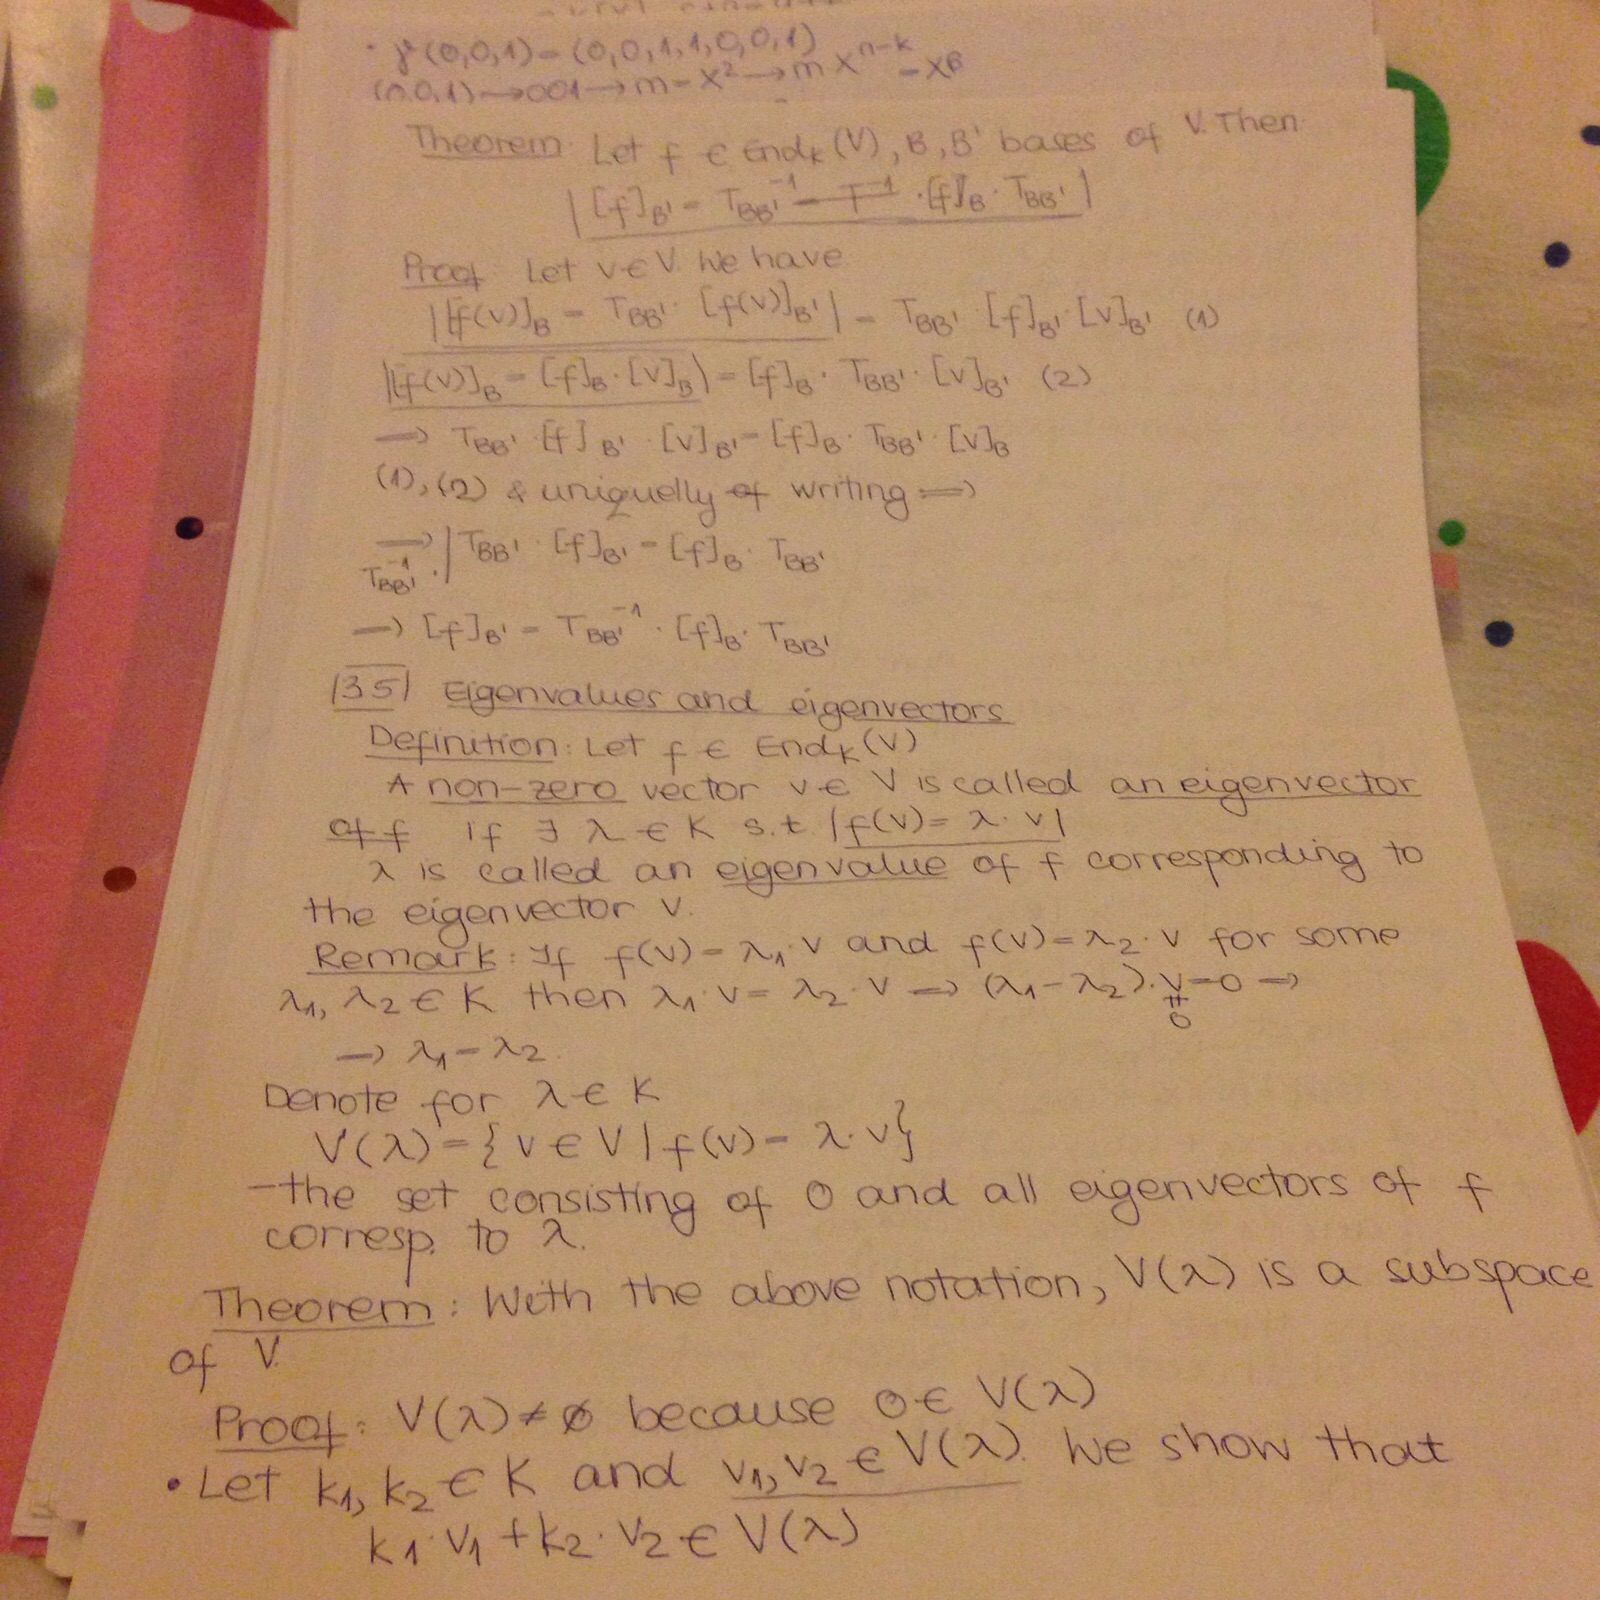 · γ(0,0,1) = (0,0,1,1,0,0,1)
(0,0,1) → 001 → m = X² → m X^{n-k} = X⁶
Theorem: Let f ∈ End_K(V), B, B' bases of V. Then
|[f]_{B'} = T_{BB'}^{-1} · [f]_B · T_{BB'}|
Proof: Let v ∈ V. We have
|[f(v)]_B = T_{BB'} · [f(v)]_{B'}| = T_{BB'} · [f]_{B'} · [v]_{B'} (1)
|[f(v)]_B = [f]_B · [v]_B| = [f]_B · T_{BB'} · [v]_{B'} (2)
=> T_{BB'} · [f]_{B'} · [v]_{B'} = [f]_B · T_{BB'} · [v]_B
(1), (2) & uniquelly of writing =>
=> | T_{BB'} · [f]_{B'} = [f]_B · T_{BB'}
T_{BB'}^{-1} ·
=> [f]_{B'} = T_{BB'}^{-1} · [f]_B · T_{BB'}
|35| Eigenvalues and eigenvectors
Definition: Let f ∈ End_K(V)
A non-zero vector v ∈ V is called an eigenvector
of f if ∃ λ ∈ K s.t. |f(v) = λ · v|
λ is called an eigenvalue of f corresponding to
the eigenvector v.
Remark: If f(v) = λ₁ · v and f(v) = λ₂ · v for some
λ₁, λ₂ ∈ K then λ₁ · v = λ₂ · v => (λ₁ - λ₂) · v = 0 =>
≠
0
=> λ₁ = λ₂.
Denote for λ ∈ K
V(λ) = { v ∈ V | f(v) = λ · v }
- the set consisting of 0 and all eigenvectors of f
corresp. to λ.
Theorem: With the above notation, V(λ) is a subspace
of V.
Proof: V(λ) ≠ ∅ because 0 ∈ V(λ)
• Let k₁, k₂ ∈ K and v₁, v₂ ∈ V(λ). We show that
k₁ · v₁ + k₂ · v₂ ∈ V(λ)